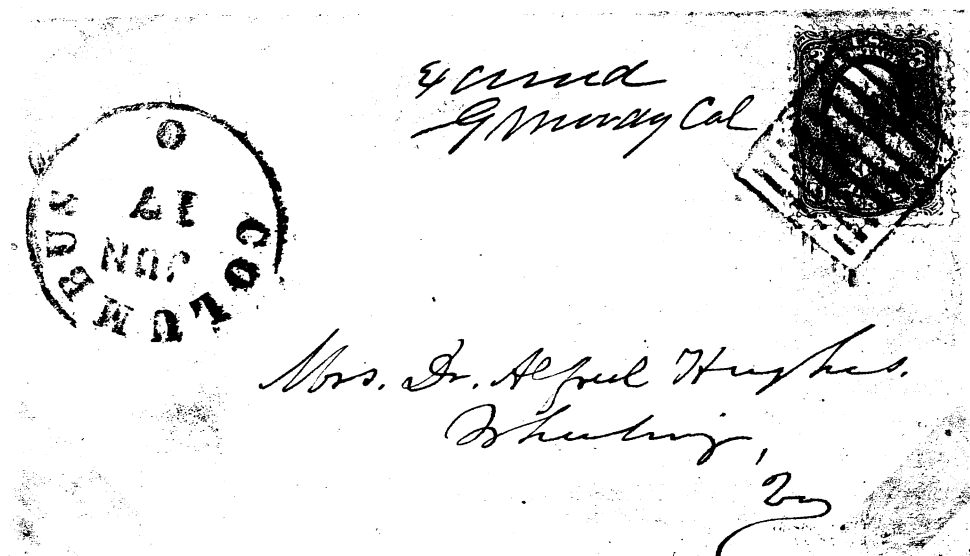 Examined
G Moody Col
COLUMBUS O
JUN
17
Mrs. Dr. Alfred Hughes.
Wheeling,
Va